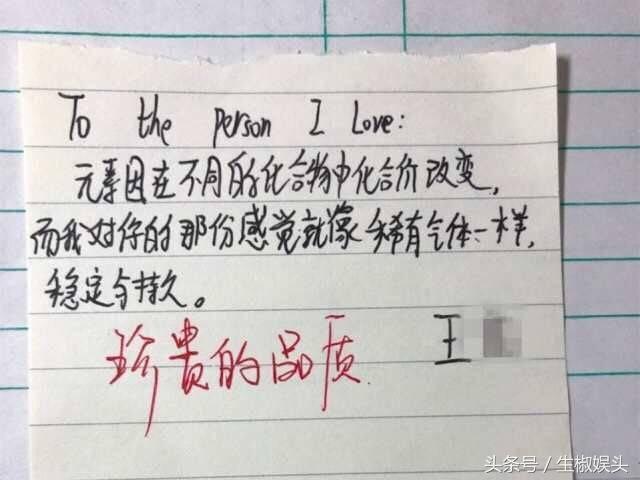 To the person I Love:
元素因在不同的化合物中化合价改变,
而我对你的那份感觉就像稀有气体一样,
稳定与持久。
珍贵的品质
王
头条号/生椒娱头